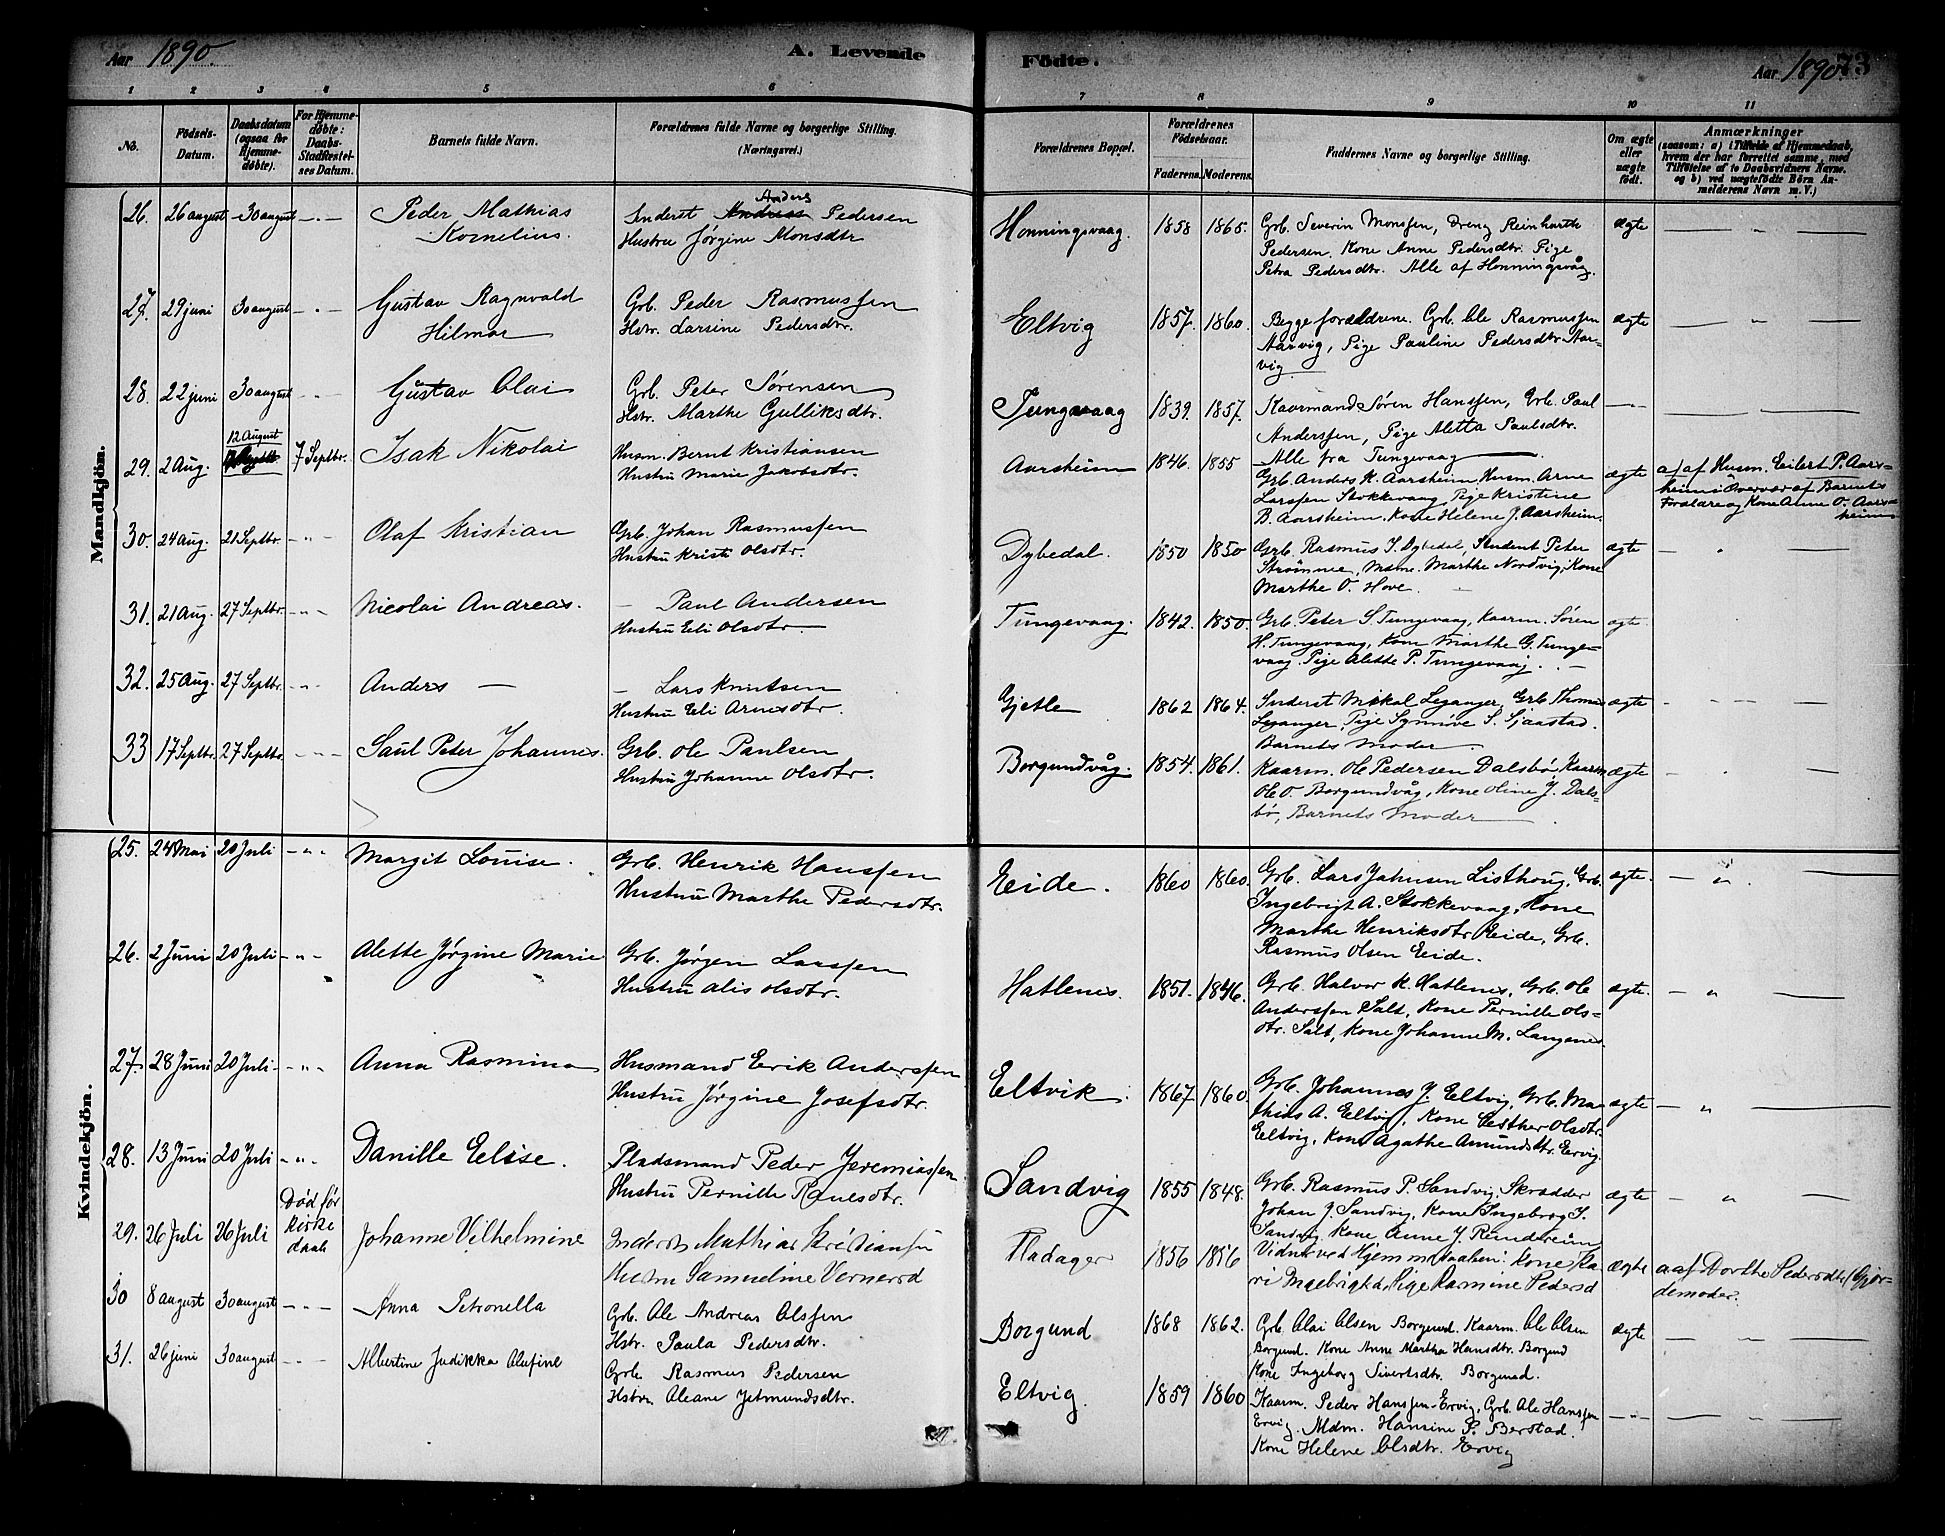 Aar 1890.
A. Levende Födte.
Aar 1890.
73
1 2 3 4 5 6 7 8 9 10 11
No.
Födsels-Datum.
Daabsdatum (ogsaa for Hjemme-døbte).
For Hjemme-døbte: Daabs-Stadfæstel-ses Datum.
Barnets fulde Navn.
Forældrenes fulde Navne og borgerlige Stilling. (Næringsvei.)
Forældrenes Bopæl.
Forældrenes Födselsaar.
Faderens. Moderens.
Faddernes Navne og borgerlige Stilling.
Om ægte eller uægte født.
Anmærkninger
(saasom: a) i Tilfælde af Hjemmedaab, hvem der har forrettet samme, med Tilføielse af to Daabsvidners Navne, og b) ved uægtefødte Börn Anmelderens Navn m. V.)
Mandkjön.
26. 26 august 30 august -"- Peder Mathias
Kornelius.
Inderst Anders Pedersen
Hustru Jørgine Monsdtr
Honningsvaag. 1858 1865.
Grb. Severin Monssen, Dreng Reinharth
Pedersen. Kone Anne Pedersdtr. Pige
Petra Pedersdtr. Alle af Honningsvåg.
ægte — " —
27. 29 juni 30 august -"- Gustav Ragnvald
Hilmar
Grb. Peder Rasmussen
Hstr. Larsine Pedersdtr.
Eltvig 1857. 1860.
Begge forældrene. Grb. Ole Rasmussen
Aarvig, Pige Pauline Pedersdtr Aar-
vig
ægte — " —
28. 22 juni 30 august -"- Gustav Olai
Grb. Peter Sørensen
Hstr. Marthe Gulliksdtr.
Tungevaag 1839. 1857.
Kaarmand Søren Hanssen, Grb. Paul
Anderssen, Pige Aletta Paulsdtr.
Alle fra Tungevaag
29. 2 Aug. 12 August 7 Septbr. Isak Nikolai
Husm. Bernt Kristiansen
Hustru Marie Jakobsdtr.
Aarsheim 1846. 1855
Grb. Anders K. Aarsheim Husm. Arne
Larssen Stokkevaag, Pige Kristine
B. Aarsheim. Kone Helene J. Aarsheim.
ægte
a) af Husm. Eilert P. Aars-
heim i Overvær af Barnets
Forældre og Kone Anne O. Aars-
heim
30. 24 Aug. 21 Septbr. -"- Olaf Kristian
Grb. Johan Rasmussen
Hustru Kristi Olsdtr.
Dybedal. 1850 1850
Grb. Rasmus J. Dybedal, Student Peter
Strømme, Mdme. Marthe Nordvig, Kone
Marthe O. Hove.
ægte — " —
31. 21 Aug. 27 Septbr. -"- Nicolai Andreas.
— Paul Andersen
Hustru Eli Olsdtr.
Tungevaag. 1842. 1850.
Grb. Peter S. Tungevaag, Kaarm. Søren
H. Tungevaag, Kone Marthe G. Tunge-
vaag. Pige Alette P. Tungevaag.
ægte
32. 25 Aug. 27 Septbr. -"- Anders —
— Lars Knutsen
Hustru Eli Arnesdtr.
Gjetle 1862 1864.
Inderst Mikal Leganger, Grb. Thomas
Leganger, Pige Synnöve S. Sjaastad.
Barnets Moder
ægte
33 17 Septbr. 27 Septbr. -"- Saul Peter Johannes.
Grb. Ole Paulsen
Hustru Johanne Olsdtr.
Borgundvåg. 1854. 1861.
Kaarm. Ole Pedersen Dalsbö, Kaarm
Ole O. Borgundvåg, Kone Oline J. Dals-
bö, Barnets Moder
ægte
Kvindekjön.
25. 24 Mai 20 Juli -"- Margit Louise.
Grb. Henrik Hanssen
Hustru Marthe Pedersdtr.
Eide. 1860 1860.
Grb. Lars Jahnsen Listhoug, Grb.
Ingebrigt A. Stokkevaag, Kone
Marthe Henriksdtr Eide, Grb.
Rasmus Olsen Eide.
ægte. — " —
26. 2 Juni 20 Juli -"- Alette Jørgine Marie
Grb. Jørgen Larssen
Hustru Alis Olsdtr.
Hatlenes. 1851. 1846.
Grb. Halvor K. Hatlenes, Grb. Ole
Anderssen Salt, Kone Pernille Ols-
dtr. Salt, Kone Johanne M. Langenes.
ægte. — " —
27. 28 Juni 20 Juli -"- Anna Rasmina
Husmand Erik Anderssen
Hustru Jørgine Josefsdtr.
Eltvik. 1867 1860
Grb. Johannes J. Eltvig, Grb. Ma-
thias A. Eltvig, Kone Esther Olsdtr.
Eltvig, Kone Agathe Amundsdtr. Ervig.
ægte — " —
28. 13 Juni 20 Juli -"- Danille Elise.
Pladsmand Peder Jeremiassen
Hustru Pernille Ranesdtr.
Sandvig 1855 1848.
Grb. Rasmus P. Sandvig, Skrædder
Johan J. Sandvig, Kone Ingeborg S.
Sandvig Kone Anne J. Remdereim
ægte — " —
29. 26 Juli 26 Juli Død før
Kirke
daab
Johanne Vilhelmine
Inderst Mathias Kristiansen
Hustru Samueline Vernersd
Fladager 1856 1856
Vidner ved Hjemmedaaben: Kone Ka-
ri Ingebrigtd, Pige Rasmine Pedersd
ægte
a af Dorthe Pedersdtr, Gjor-
demoder.
30 8 august 30 august -"- Anna Petronella
Grb. Ole Andreas Olssen
Hstr. Paula Pedersdtr.
Borgund 1868 1862.
Grb. Olai Olsen Borgund. Kaarm. Ole Olsen
Borgund. Kone Anne Martha Hansdtr. Borgund
Kone Ingeborg Sivertsdtr. Borgund.
ægte — " —
31. 26 juni 30 august -"- Albertine Judikka Olufine
Grb. Rasmus Pedersen
Hstru Oleane Jetmundsdtr.
Eltvig. 1859 1860
Kaarm. Peder Hanssen Ervig, Grb. Ole Hanssen
Ervig. Mdm. Hansine P. Berstad.
Kone Helene Olsdtr. Ervig
-"- — " —